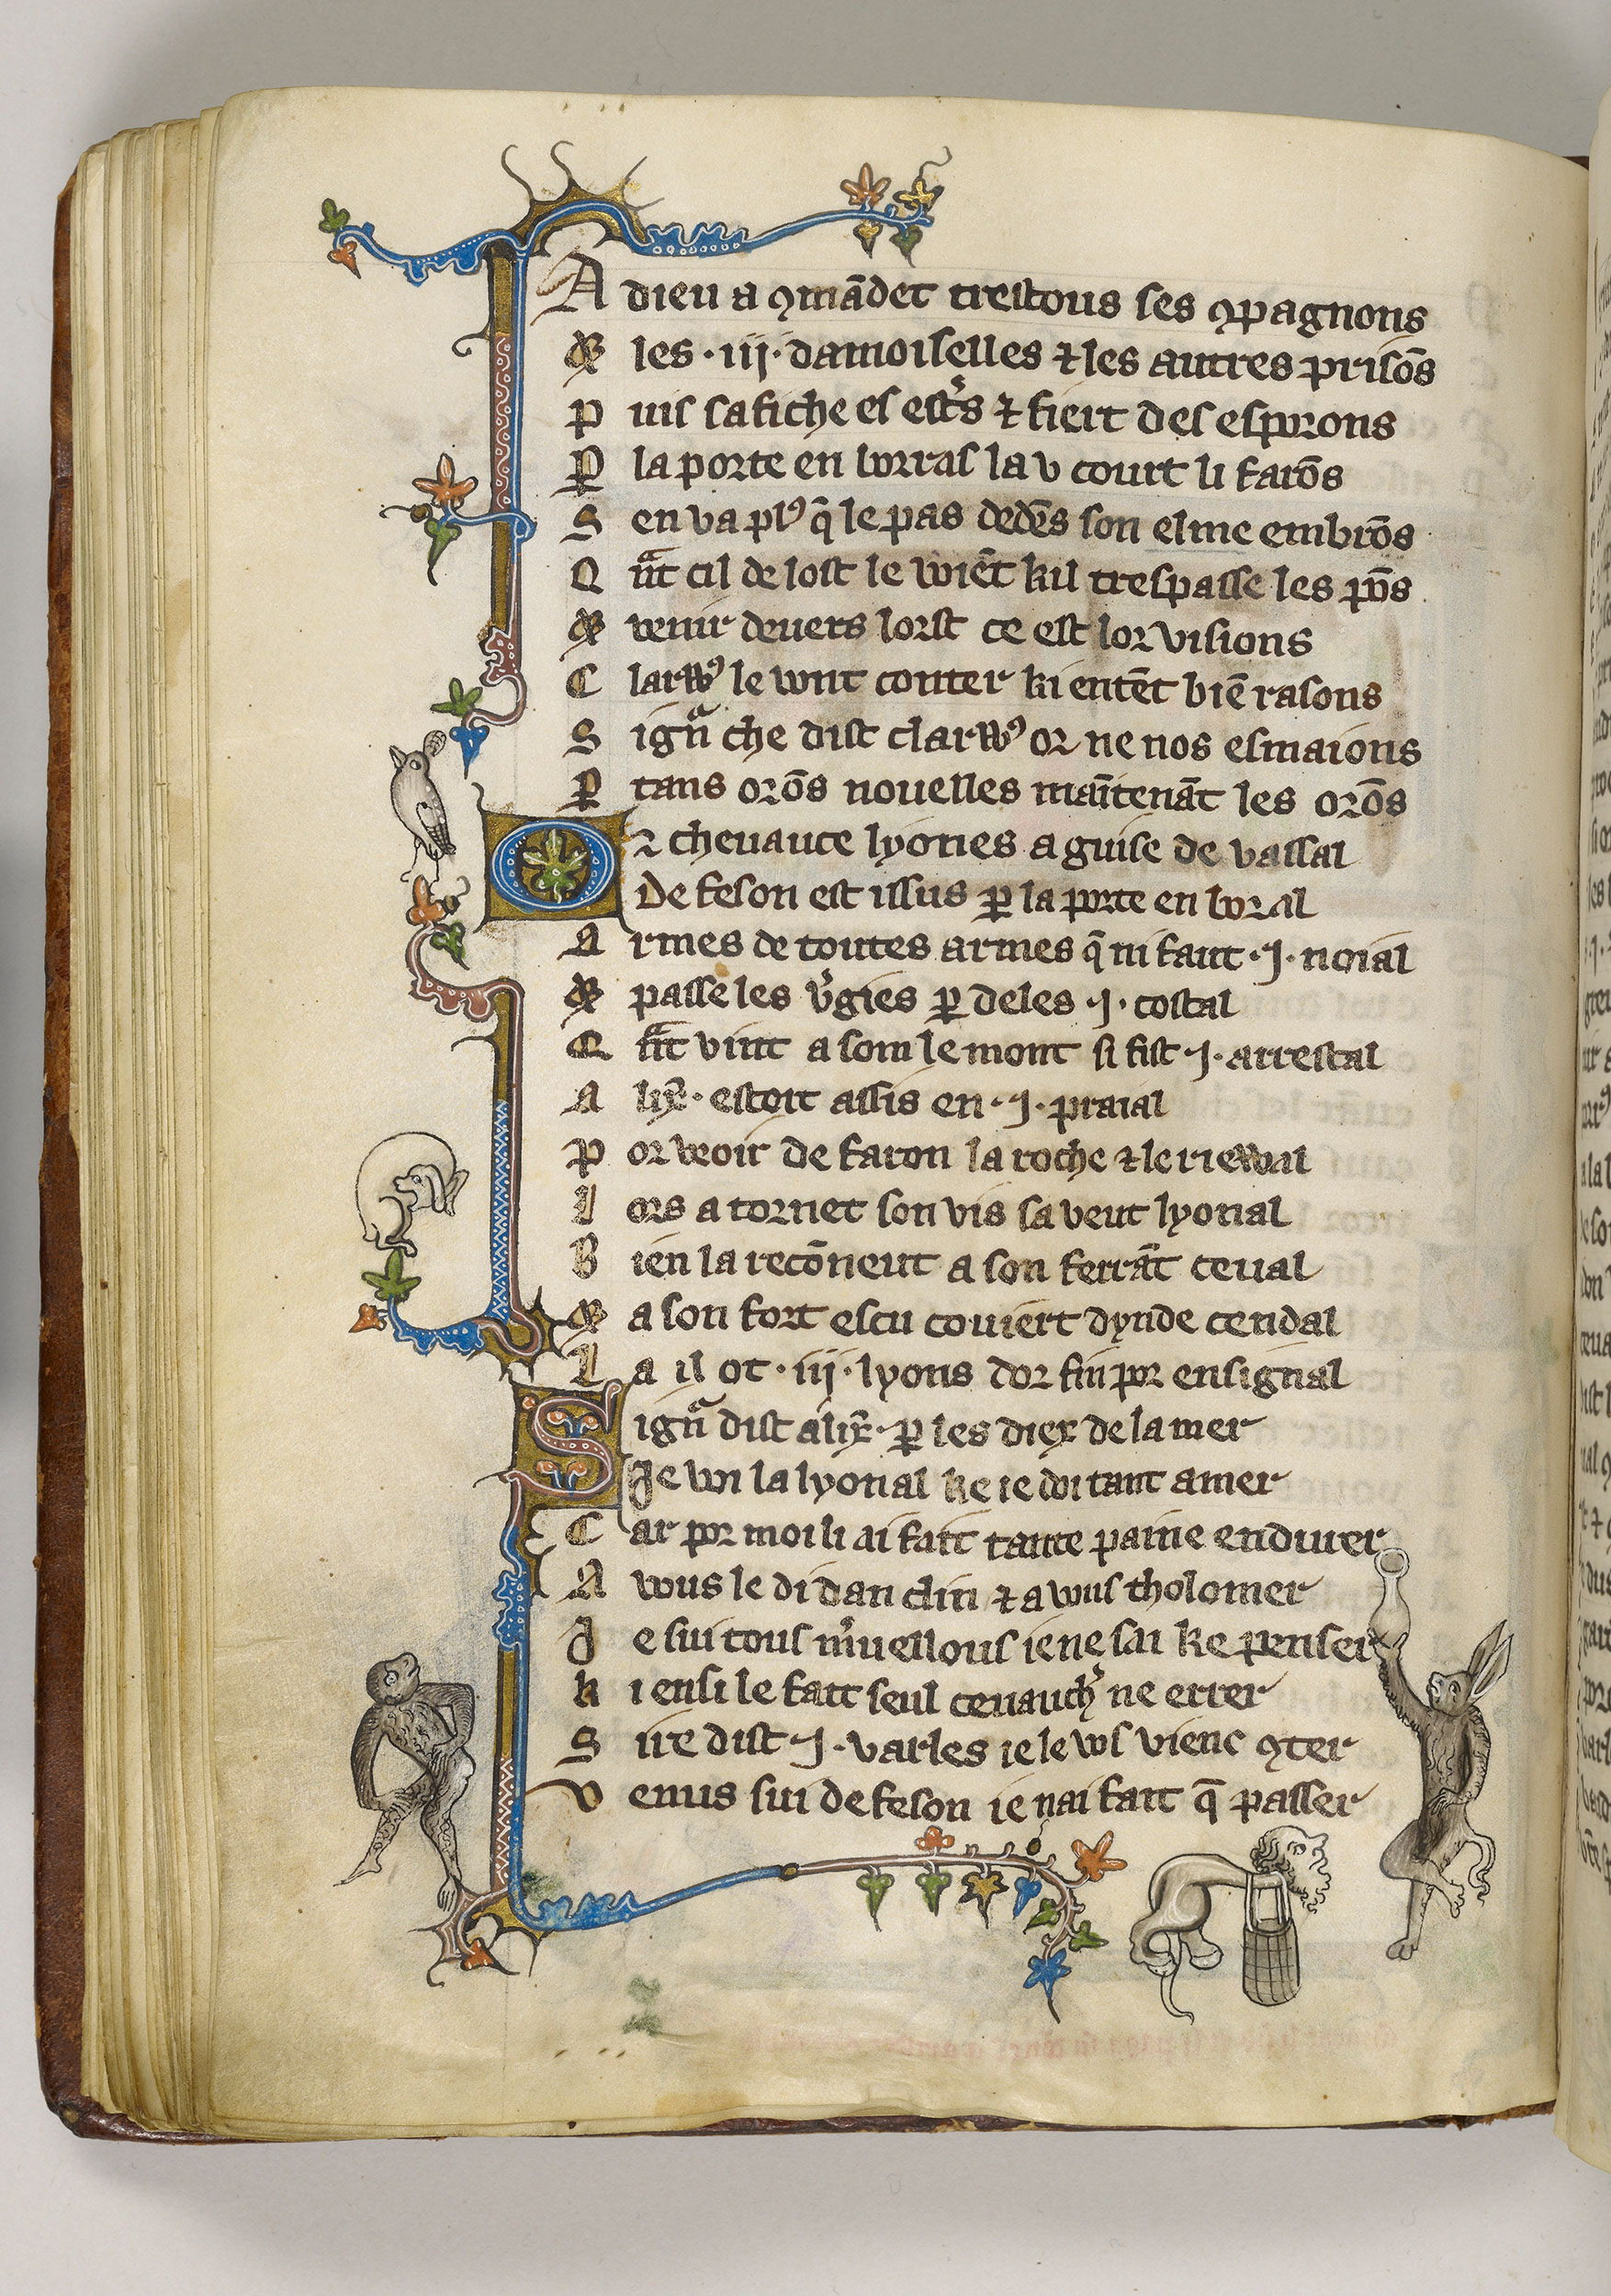 A dieu a ꝯmādet trestous ses ꝯpagnons
Et les · iij · damoiselles ⁊ les autres prisōs
P uis safiche es estͬs ⁊ fiert des esporons
Ꝑ la porte en borras la v court li farōs
S en va plꝰ q̄ le pas dedēs son elme embrōs
Q nͣt cil de lost le voiēt kil trespasse les pōs
Et venir deuers lorst ce est lor visions
C larvvꝰ le vont conter ki entēt biē rasons
S ignͣ che dist clarvvꝰ or ne nos esmaions
Ꝑ tans orōs nouelles maītenāt les orōs
O r cheuauce lyones a guise de vassal
De feson est issus ꝑ la porte en boral
A rmes de toutes armes q̄ ni faut · I · noial
Et passe les vͥgies ꝑ deles · I · costal
Q nͣt vint a som le mont si fist · I · arrestal
A lix̄ · estoit assis en · I · praial
P or veoir de faron la roche ⁊ le rievval
L ors a tornet son vis sa veut lyonal
B ien la recōneut a son ferrāt ceual
Et a son fort escu couiert dynde cendal
L a il ot · iij · lyons dor fin por ensignal
S ignͣ dist alix̄ · ꝑ les diex de la mer
Je voi la lyonal ke ie doi tant amer
C ar por moi li ai fait tante paine endurer
A vous le di dan clin ⁊ a vous tholomer
J e sui tous mͥuellous ie ne sai ke penser
K i ensi le fait seul ceuauchͥ ne errer
S ire dist · I · varles ie le vos vienc ꝯter
V enus sui de feson ie nai fait q̄ passer